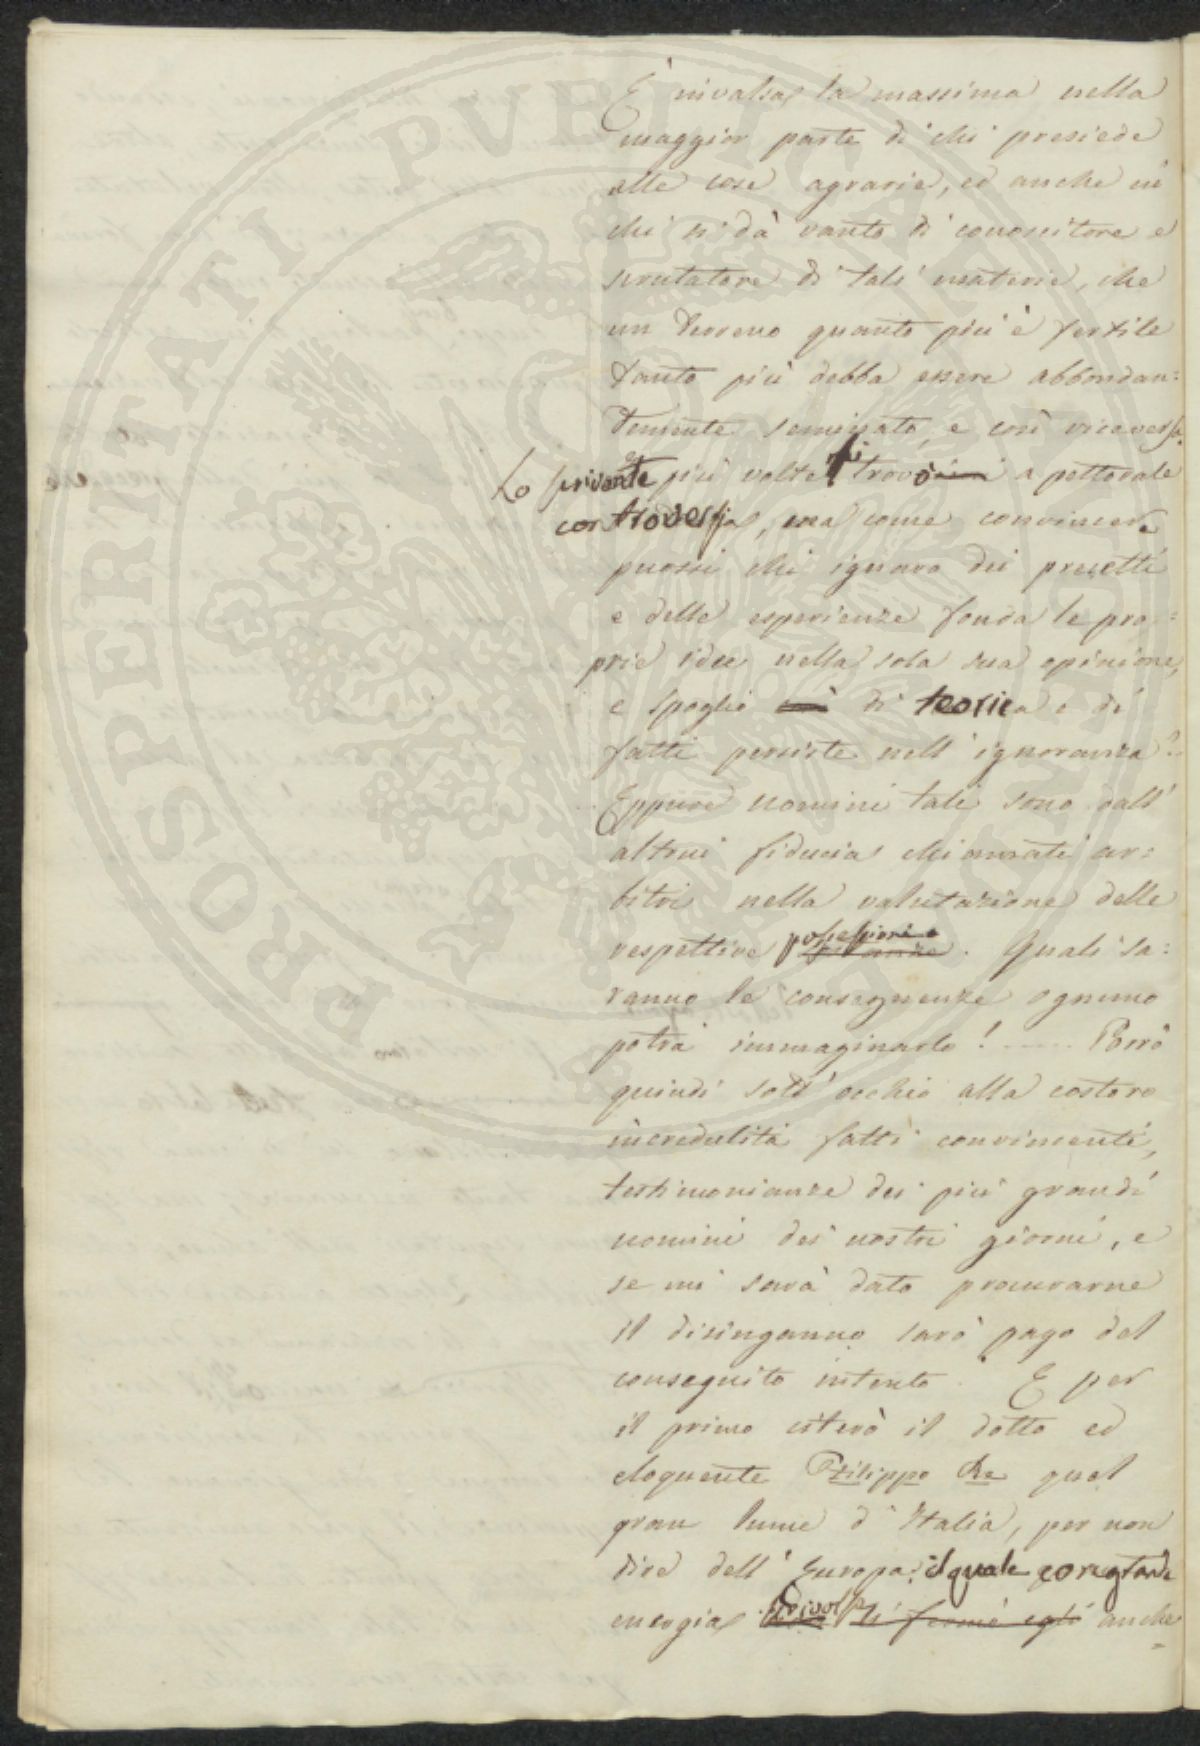 È invalsa la massima nella
maggior parte di chi presiede
alle cose agrarie, ed anche in
chi si dà vanto di conoscitore e
scrutatore di tali materie, che
un terreno quanto più è fertile
tanto più debba essere abbondan=
temente seminato, e così viceversa.
Lo scrivente più volte si trovò a pettorale
controversia, ma come convincere
puossi chi ignaro dei precetti
e delle esperienze fonda le pro=
prie idee nella sola sua opinione,
e spoglio di teorica e di
fatti persiste nell'ignoranza?
Eppure uomini tali sono dall'
altrui fiducia chiamati ar=
bitri nella valutazione delle
respettive possessioni. Quali sa=
ranno le conseguenze ognuno
potrà immaginarlo! Porrò
quindi sott'occhio alla costoro
incredulità fatti convincenti,
testimonianze dei più grandi
uomini dei nostri giorni, e
se mi sarà dato procurarne
il disinganno sarò pago del
conseguito intento. E per
il primo citerò il dotto ed
eloquente Filippo Re quel
gran lume d'Italia, per non
dire dell'Europa, il quale con grande
energia si fermò egli anche
PROSPERITATI PVBLICAE AVGENDAE